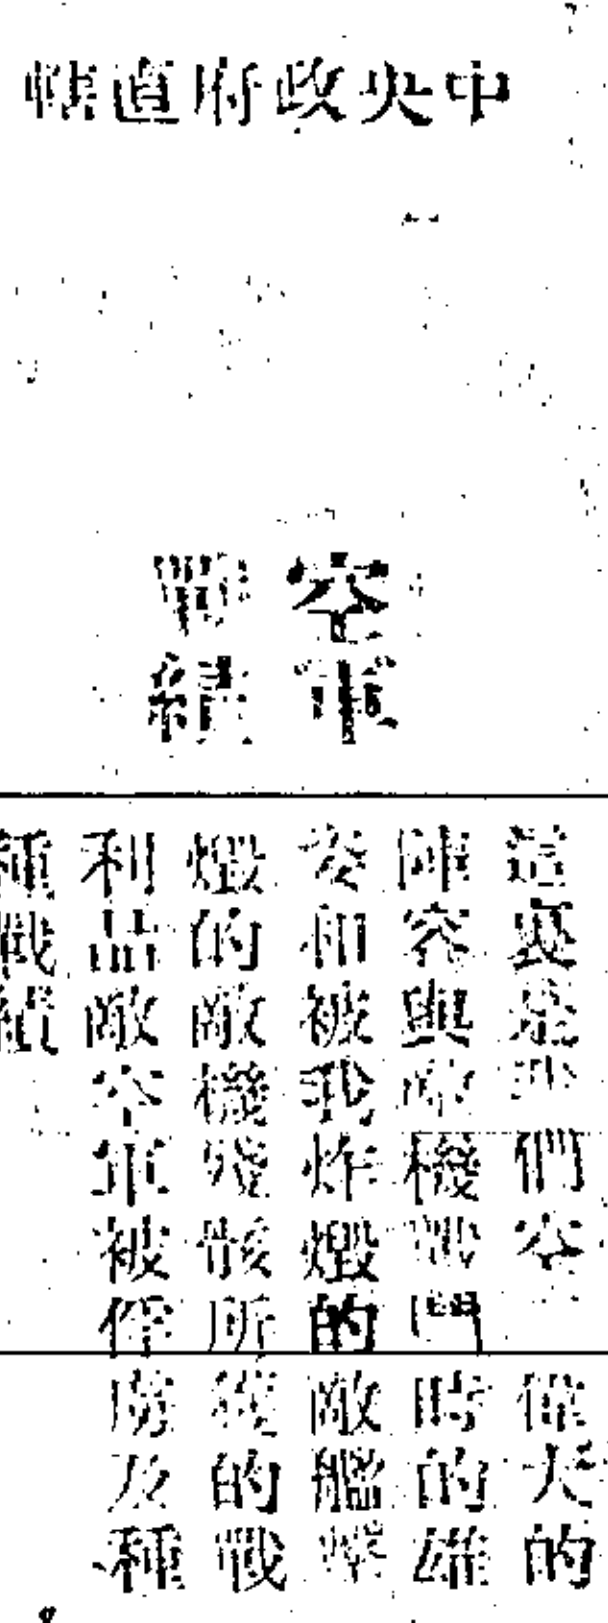 中央政府直轄
空軍
戰績
這裏是我們空偉大的
陣容與敵機戰鬥時的雄
姿和被我炸燬的敵艦擊
燬的敵機殘骸所獲的戰
利品敵空軍被俘虜及種
種戰績